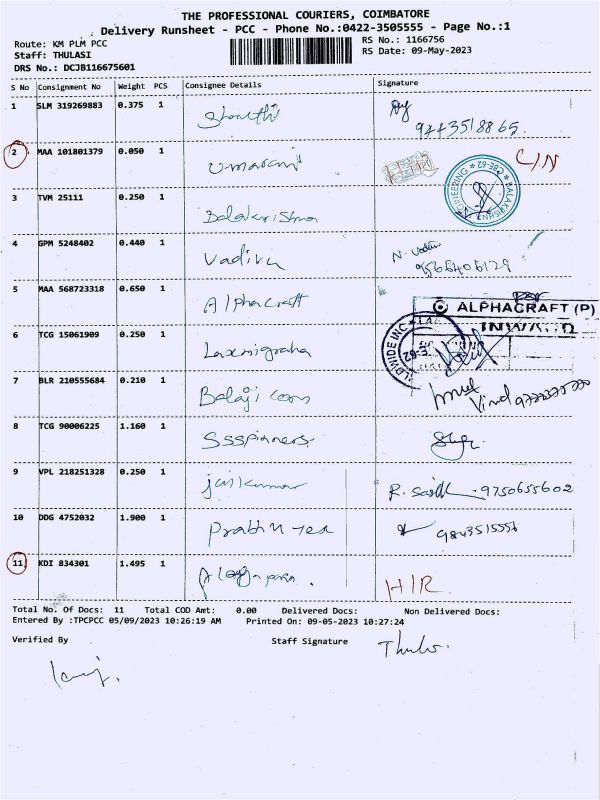 THE PROFESSIONAL COURIERS, COIMBATORE
Delivery Runsheet - PCC - Phone No.:0422-3505555 - Page No.:1
Route: KM PLM PCC
Staff: THULASI
DRS No.: DCJB116675601
RS No.: 1166756
RS Date: 09-May-2023
S No Consignment No Weight PCS Consignee Details Signature
1 SLM 319269883 0.375 1 Shanthi
9443518865.
2 MAA 101801379 0.050 1 Umarani L/N
3 TVM 25111 0.250 1 Balakrishna
4 GPM 5248402 0.440 1 Vadivu
9566406129
5 MAA 568723318 0.650 1 Alphacraft
ALPHACRAFT (P)
INWARD
6 TCG 15061909 0.250 1 Laxmigraha
7 BLR 210555684 0.210 1 Balaji
8 TCG 90006225 1.160 1 Ssspinners
9 VPL 218251328 0.250 1 jaikumar
9750655602
10 DDG 4752032 1.900 1 Prabhu Tex
9843515556
11 KDI 834301 1.495 1
H/R.
Total No. Of Docs: 11 Total COD Amt: 0.00 Delivered Docs: Non Delivered Docs:
Entered By :TPCPCC 05/09/2023 10:26:19 AM Printed On: 09-05-2023 10:27:24
Verified By Staff Signature